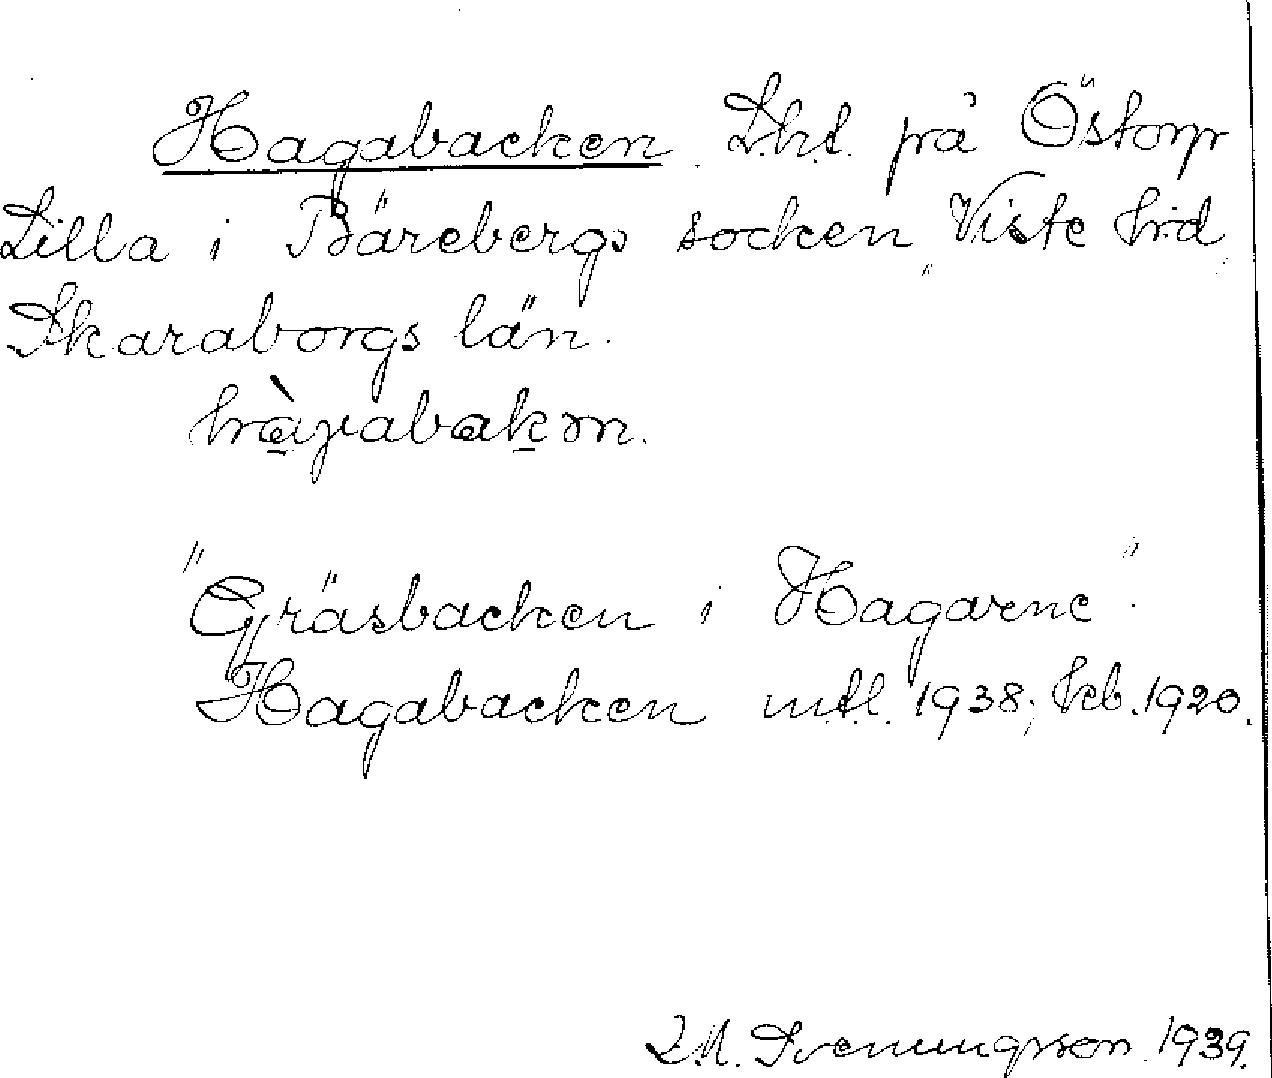 Hagabacken. Lht. på Östorp
Lilla i Bärebergs socken, Viste hrd,
Skaraborgs län.
hàgabakən.
"Gräsbacken i Hagarne".
Hagabacken mtl. 1938; kb. 1920.
L M. Svenungsson 1939.